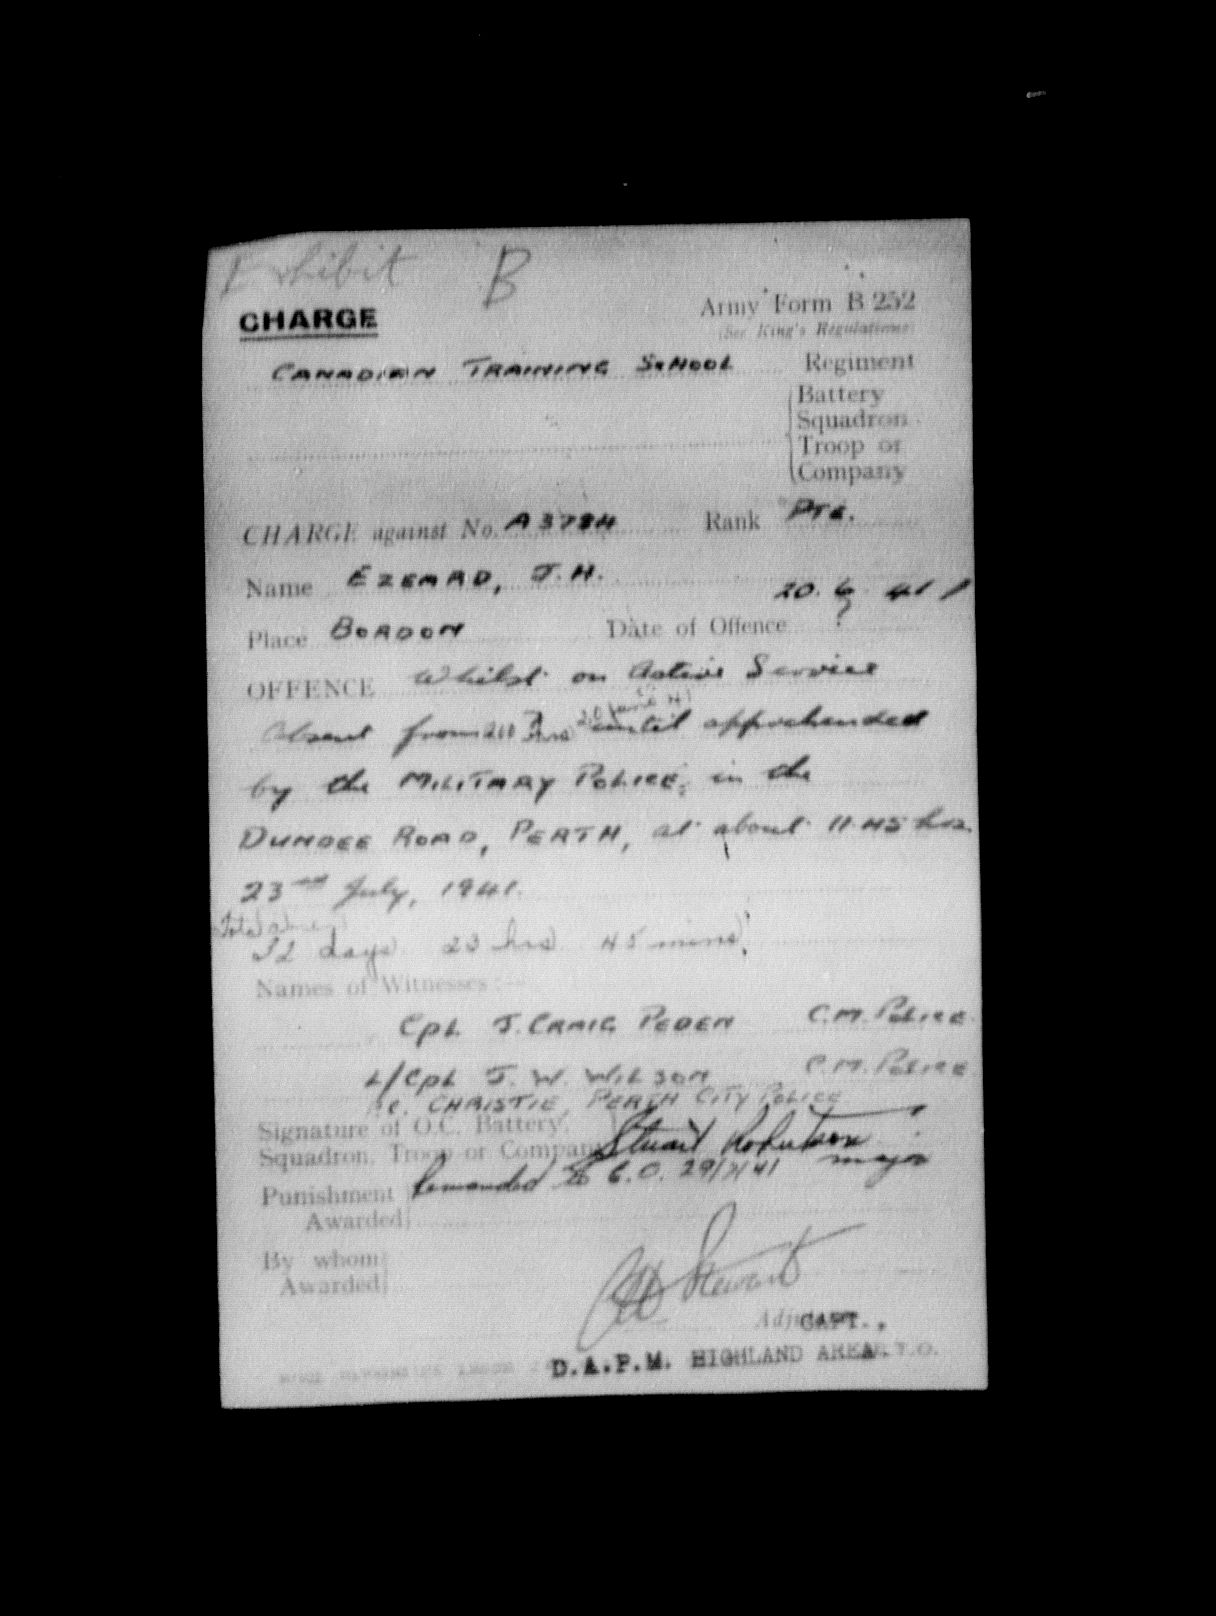 Exhibit B
CHARGE
Army Form B 252
(See King's Regulations)
CANADIAN TRAINING SCHOOL Regiment
Battery
Squadron
Troop or
Company
CHARGE against No. A3784 Rank Pte.
Name EZEARD, J.H.
20. 6 41
Place BORDON Date of Offence
?
OFFENCE Whilst on Active Service
20 June 41
Absent from hrs until apprehended
by the MILITARY POLICE, in the
DUNDEE ROAD, PERTH, at about 11.45 hrs.
23rd July, 1941.
Total
32 days 23 hrs 45 mins
Names of Witnesses:—
Cpl J. CRAIG PEDEN C.M. Police
L/Cpl J. W. WILSON C.M. Police
Pc. CHRISTIE, PERTH CITY POLICE
Signature of O.C. Battery,
Squadron, Troop or Company Stuart Robertson
major
Punishment Remanded to C.O. 29/7/41
Awarded
By whom
Awarded
Stewart
Adjutant
CAPT.,
D.A.P.M. HIGHLAND AREA.